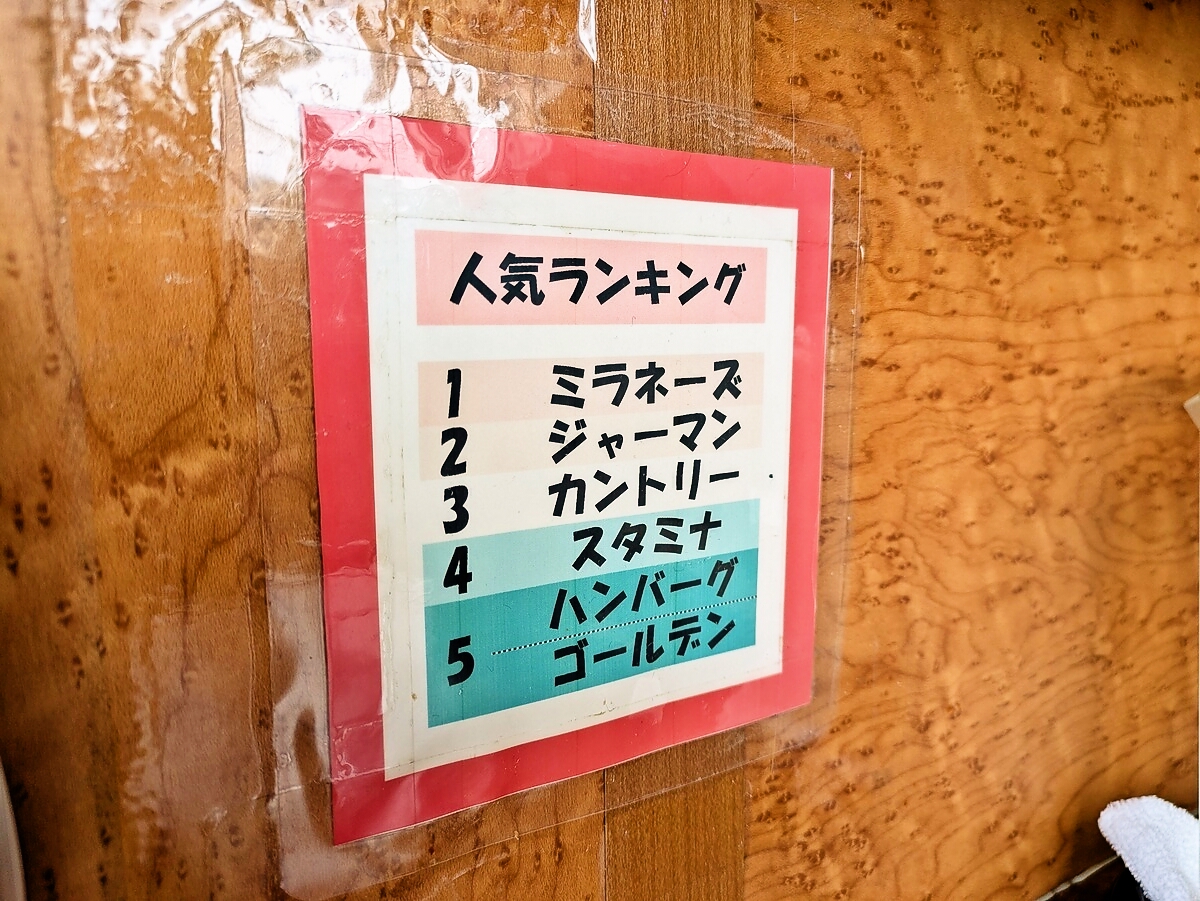 人気ランキング
1 ミラネーズ
2 ジャーマン
3 カントリー
4 スタミナ
ハンバーグ
5 ゴールデン